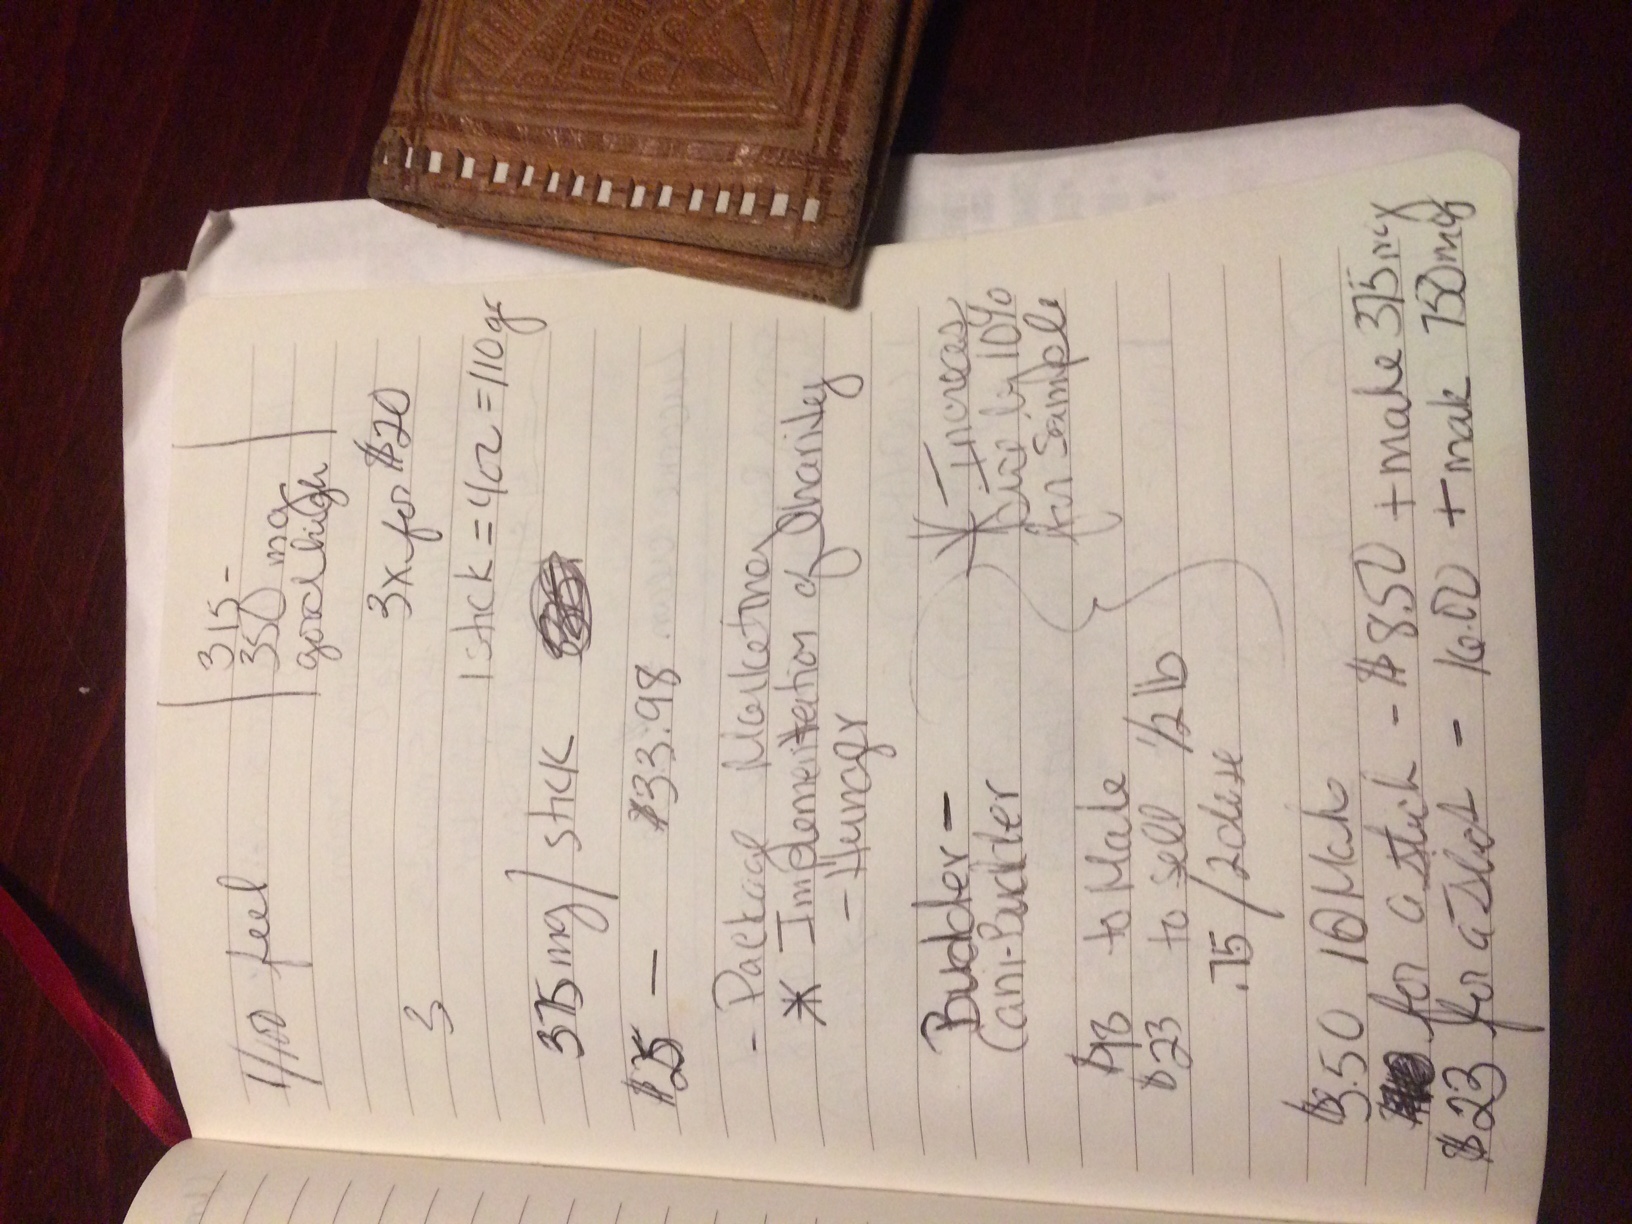 1/100 feel
315-
350 mg
good high
3x for $20
3
1 stick = 4oz = 110 gr
375 mg / stick
$25 — $33.98
- Package Marketing
* Implementation of Charity
- Hunger
Budder -
Cani-Budder
* - Increase
price by 10%
for Sample
to Make
$23 to sell 1/2 lb
.75 / 2 dose
$3.50 to Make
for a stick - $8.50 + make 375 mg
$23 for a - 16.00 + mak 750 mg